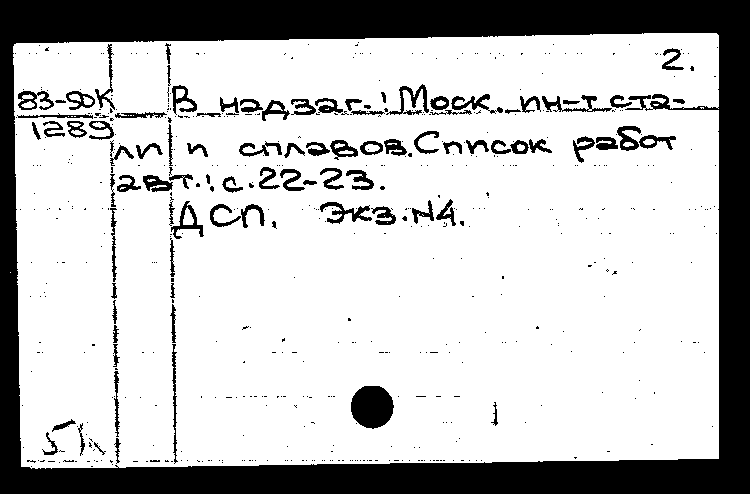 2.
83-50К В надзаг.: Моск. ин-т ста-
1289
ли и сплавов. Список работ
авт.: с. 22-23.
ДСП. Экз. N4.